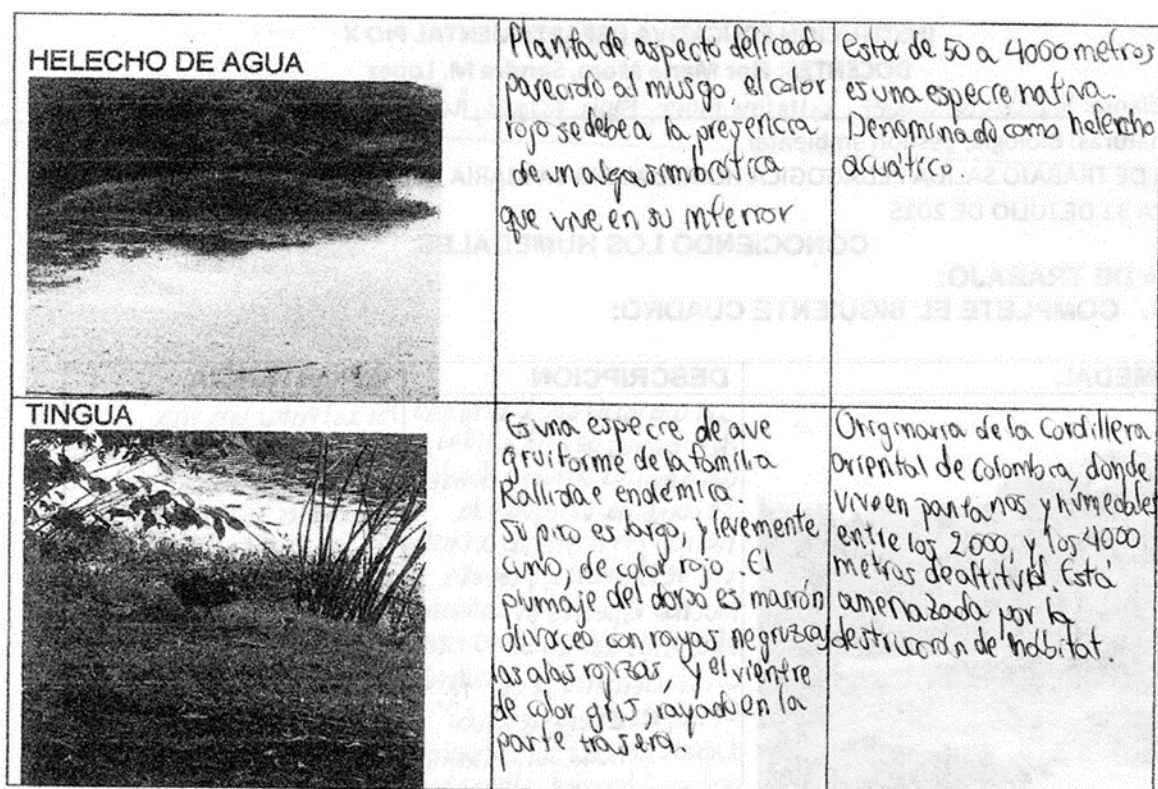 HELECHO DE AGUA
Planta de aspecto delicado
parecido al musgo, el color
rojo se debe a la presencia
de un alga simbiótica
que vive en su interior
Esta de 50 a 4000 metros
es una especie nativa.
Denominado como helecho
acuático.
TINGUA
Es una especie de ave
gruiforme de la familia
Rallidae endémica.
Su pico es largo, y levemente
curvo, de color rojo. El
plumaje del dorso es marrón
olivarceo con rayas negruzcas
las alas rojizas, y el vientre
de color gris, rayado en la
parte trasera.
Originaria de la Cordillera
oriental de colombia, donde
vive en pantanos y humedales
entre los 2.000, y los 4000
metros de altitud. Está
amenazada por la
destrucción de habitat.
DOCENTES:
31 DE JULIO DE 2015
CONOCIENDO LOS HUMEDALES:
DE TRABAJO:
COMPLETE EL SIGUIENTE CUADRO:
DESCRIPCION